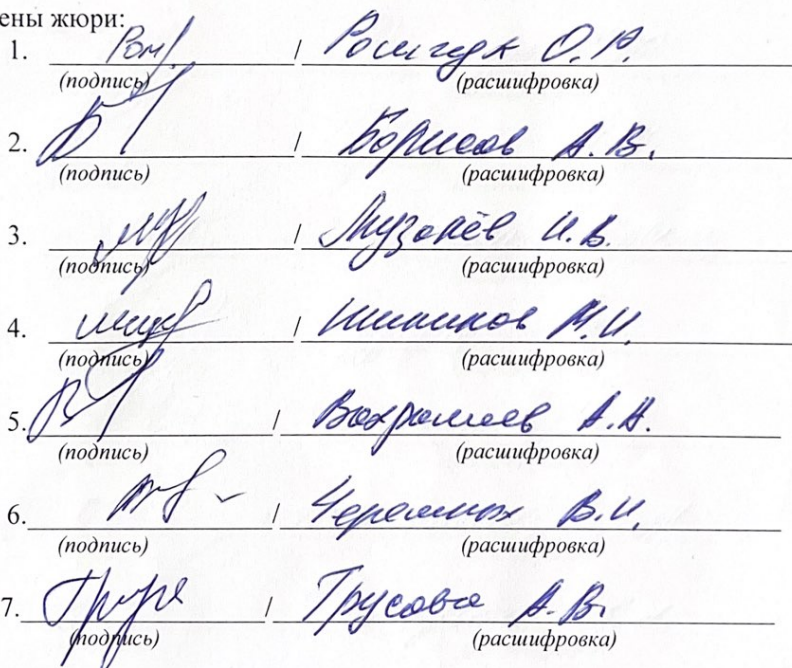 ены жюри:
1. / О. А.
(подпись) (расшифровка)
2. / Борисов А. В.
(подпись) (расшифровка)
3. / Музалёв И. В.
(подпись) (расшифровка)
4. / Шишиков М. И.
(подпись) (расшифровка)
5. / Вахрамеев А. А.
(подпись) (расшифровка)
6. / Черемных В. И.
(подпись) (расшифровка)
7. / Трусова А. В.
(подпись) (расшифровка)